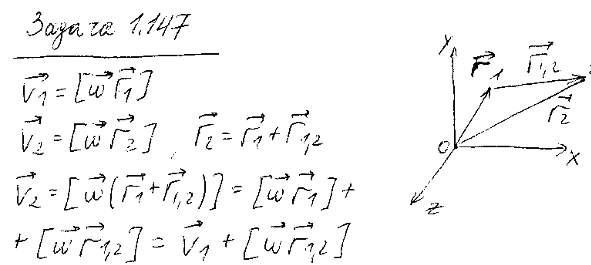 Задача 1.147
v⃗1 = [w⃗ r⃗1]
v⃗2 = [w⃗ r⃗2], r⃗2 = r⃗1 + r⃗1,2
v⃗2 = [w⃗ (r⃗1 + r⃗1,2)] = [w⃗ r⃗1] +
+ [w⃗ r⃗1,2] = v⃗1 + [w⃗ r⃗1,2]
y
r⃗ 1
r⃗1,2
2
r⃗2
0
x
z